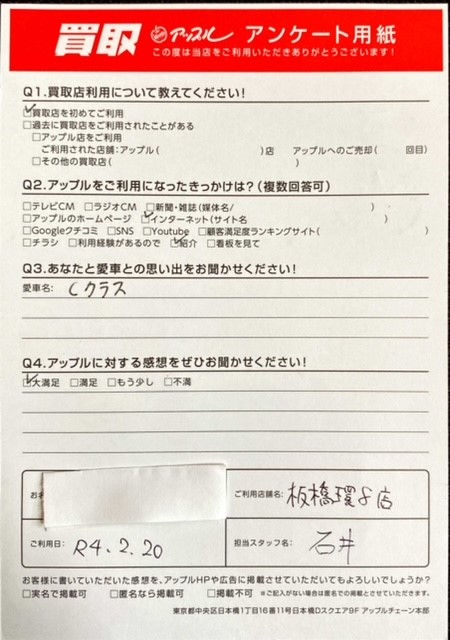 買取 アップル アンケート用紙
この度は当店をご利用いただきありがとうございます！
Q1.買取店利用について教えてください！
☑買取店を初めてご利用
□過去に買取店をご利用されたことがある
□アップル店をご利用
ご利用された店舗：アップル( )店 アップルへのご売却( 回目)
□その他の買取店( )
Q2.アップルをご利用になったきっかけは？(複数回答可)
□テレビCM □ラジオCM □新聞・雑誌(媒体名/ )
□アップルのホームページ ☑インターネット(サイト名 )
□Googleクチコミ □SNS □Youtube □顧客満足度ランキングサイト( )
□チラシ □利用経験があるので ☑紹介 □看板を見て
Q3.あなたと愛車との思い出をお聞かせください！
愛車名： Cクラス
Q4.アップルに対する感想をぜひお聞かせください！
☑大満足 □満足 □もう少し □不満
ご利用店舗名： 板橋環8店
ご利用日： R4.2.20 担当スタッフ名： 石井
お客様に書いていただいた感想を、アップルHPや広告に掲載させていただいてもよろしいでしょうか？
□実名で掲載可 □匿名なら掲載可 □掲載不可 ※ご記入がない場合は匿名での掲載とさせていただきます。
東京都中央区日本橋1丁目16番11号日本橋Dスクエア9F アップルチェーン本部